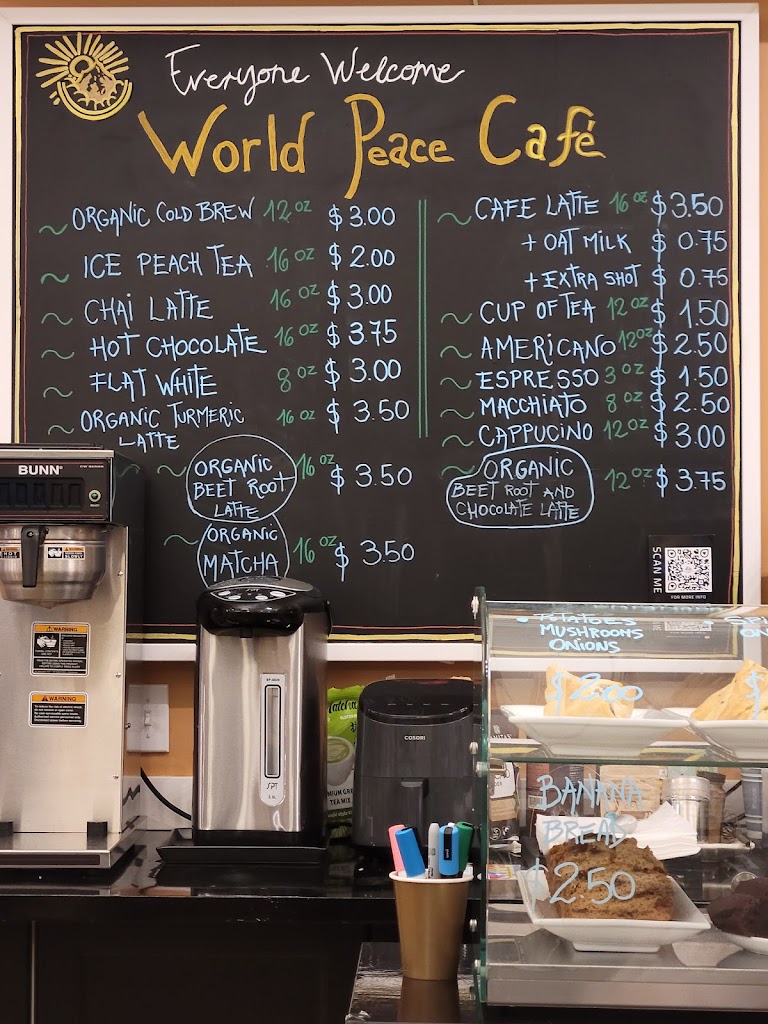 Everyone Welcome
World Peace Café
~ ORGANIC COLD BREW 12 oz $ 3.00
~ ICE PEACH TEA 16 oz $ 2.00
~ CHAI LATTE 16 oz $ 3.00
~ HOT CHOCOLATE 16 oz $ 3.75
~ FLAT WHITE 8 oz $ 3.00
~ ORGANIC TURMERIC 16 oz $ 3.50
LATTE
~ ORGANIC
BEET ROOT 16 oz $ 3.50
LATTE
~ ORGANIC
MATCHA 16 oz $ 3.50
~ CAFE LATTE 16 oz $ 3.50
+ OAT MILK $ 0.75
+ EXTRA SHOT $ 0.75
~ CUP OF TEA 12 oz $ 1.50
~ AMERICANO 12 oz $ 2.50
~ ESPRESSO 3 oz $ 1.50
~ MACCHIATO 8 oz $ 2.50
~ CAPPUCINO 12 oz $ 3.00
~ ORGANIC
BEET ROOT AND 12 oz $ 3.75
CHOCOLATE LATTE
SCAN ME
FOR MORE INFO
BUNN
WARNING
WARNING
SPT
COSORI
TEA MIX
POTATOES
MUSHROOMS
ONIONS
$2.00
BANANA
BREAD
$2.50